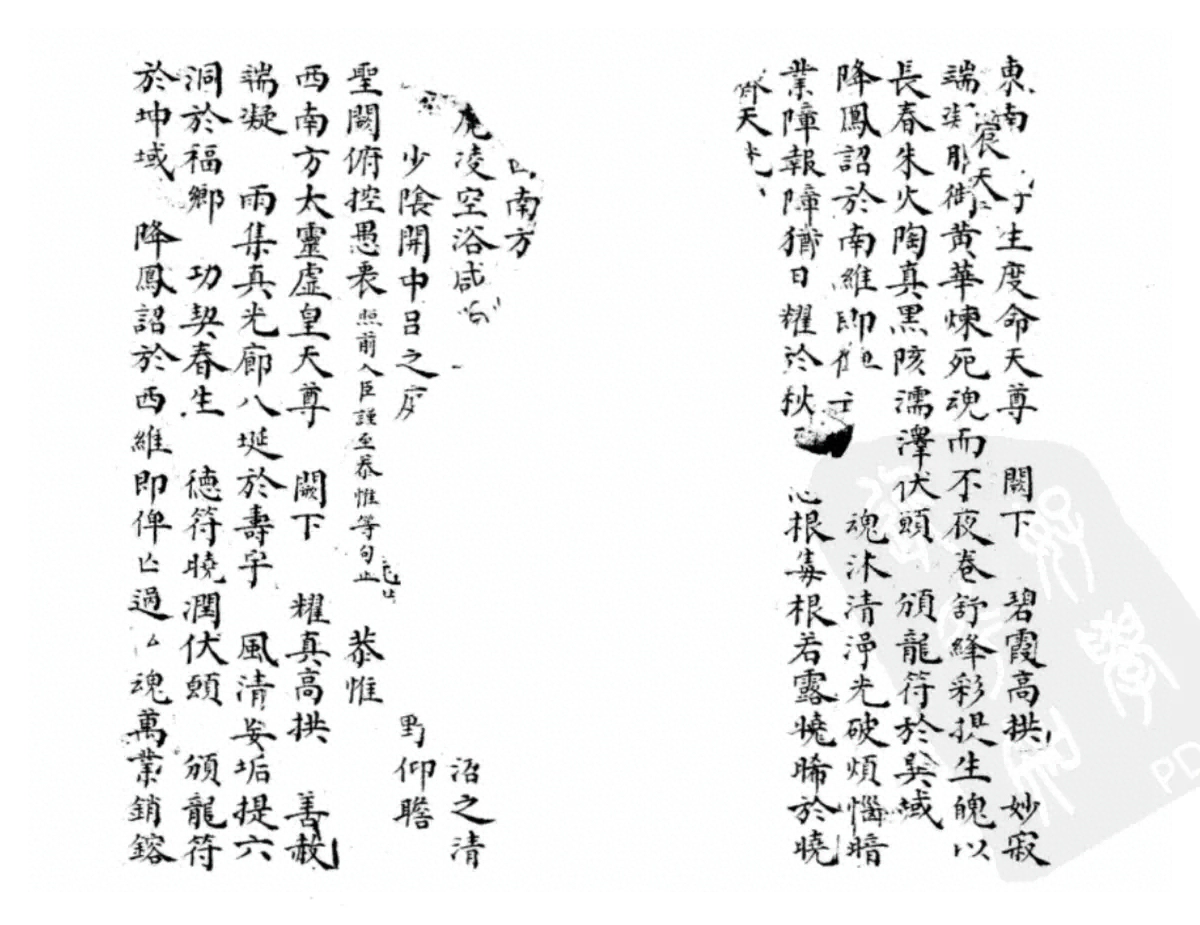 東南 生度命天尊 闕下 碧霞高拱 妙寂
端凝 御黄華煉死魂而不夜卷舒絳彩提生魄以
宸天
長春朱火陶真黒陔濡澤伏願 頒龍符於巽域
降鳳詔於南維即 魂沐清浄光破煩惱暗
業障報障猶日耀於秋 根毒根若露晞於曉
天
南方
凌空浴咸 沼之清
少陰開中呂之 野仰瞻
聖闕俯控愚衷照前入臣謹至恭惟等句止 恭惟
西南方太靈虛皇天尊 闕下 耀真高拱 善救
端凝 雨集真光廓八埏於壽宇 風清妄垢提六
洞於福鄉 功契春生 德符曉潤伏願 頒龍符
於坤域 降鳳詔於西維即俾亡過厶魂萬業銷鎔
PD